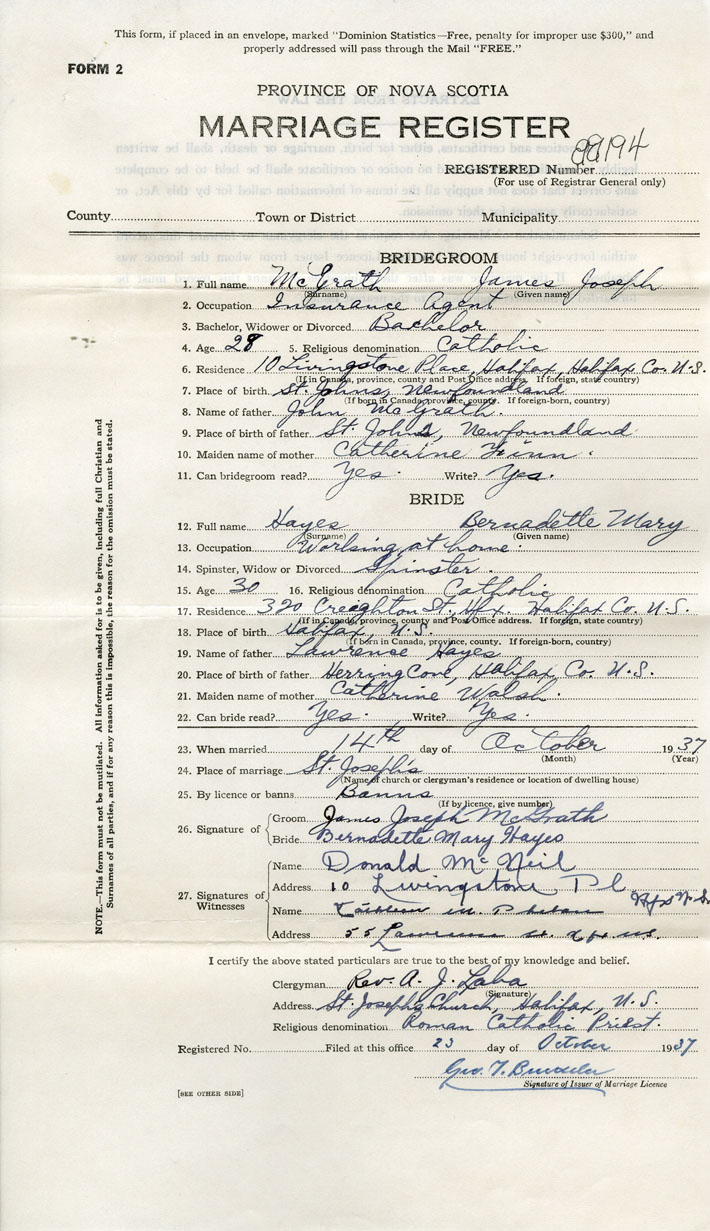 This form, if placed in an envelope, marked "Dominion Statistics—Free, penalty for improper use $300," and
properly addressed will pass through the Mail "FREE."
FORM 2
PROVINCE OF NOVA SCOTIA
MARRIAGE REGISTER
REGISTERED Number
(For use of Registrar General only)
County Town or District Municipality
BRIDEGROOM
1. Full name McGrath James Joseph
(Surname) (Given name)
2. Occupation Insurance Agent
3. Bachelor, Widower or Divorced Bachelor
4. Age 28 5. Religious denomination Catholic
6. Residence 10 Livingstone Place, Halifax, Halifax Co. N.S.
(If in Canada, province, county and Post Office address. If foreign, state country)
7. Place of birth St. Johns, Newfoundland
(If born in Canada, province, county. If foreign-born, country)
8. Name of father John McGrath.
9. Place of birth of father St. Johns, Newfoundland
10. Maiden name of mother Catherine Finn.
11. Can bridegroom read? Yes. Write? Yes.
BRIDE
12. Full name Hayes Bernadette Mary
(Surname) (Given name)
13. Occupation Working at home.
14. Spinster, Widow or Divorced Spinster.
15. Age 30 16. Religious denomination Catholic
17. Residence 320 Creighton St., Hfx. Halifax Co. N.S.
(If in Canada, province, county and Post Office address. If foreign, state country)
18. Place of birth Halifax, N.S.
(If born in Canada, province, county. If foreign-born, country)
19. Name of father Lawrence Hayes
20. Place of birth of father Herring Cove, Halifax Co. N.S.
21. Maiden name of mother Catherine Walsh.
22. Can bride read? Yes. Write? Yes.
23. When married 14th day of October 1937
(Month) (Year)
24. Place of marriage St. Joseph's
(Name of church or clergyman's residence or location of dwelling house)
25. By licence or banns Banns
(If by licence, give number)
26. Signature of
Groom James Joseph McGrath
Bride Bernadette Mary Hayes
27. Signatures of Witnesses
Name Donald McNeil
Address 10 Livingstone Pl Hfx N.S.
Name M. Phelan
Address 55 St. Hfx. N.S.
I certify the above stated particulars are true to the best of my knowledge and belief.
Clergyman Rev. A. J. Laba
(Signature)
Address St. Josephs Church, Halifax, N.S.
Religious denomination Roman Catholic Priest.
Registered No. Filed at this office 23 day of October 1937
Geo. T.
Signature of Issuer of Marriage Licence
[SEE OTHER SIDE]
NOTE.—This form must not be mutilated. All information asked for is to be given, including full Christian and
Surnames of all parties, and if for any reason this is impossible, the reason for the omission must be stated.